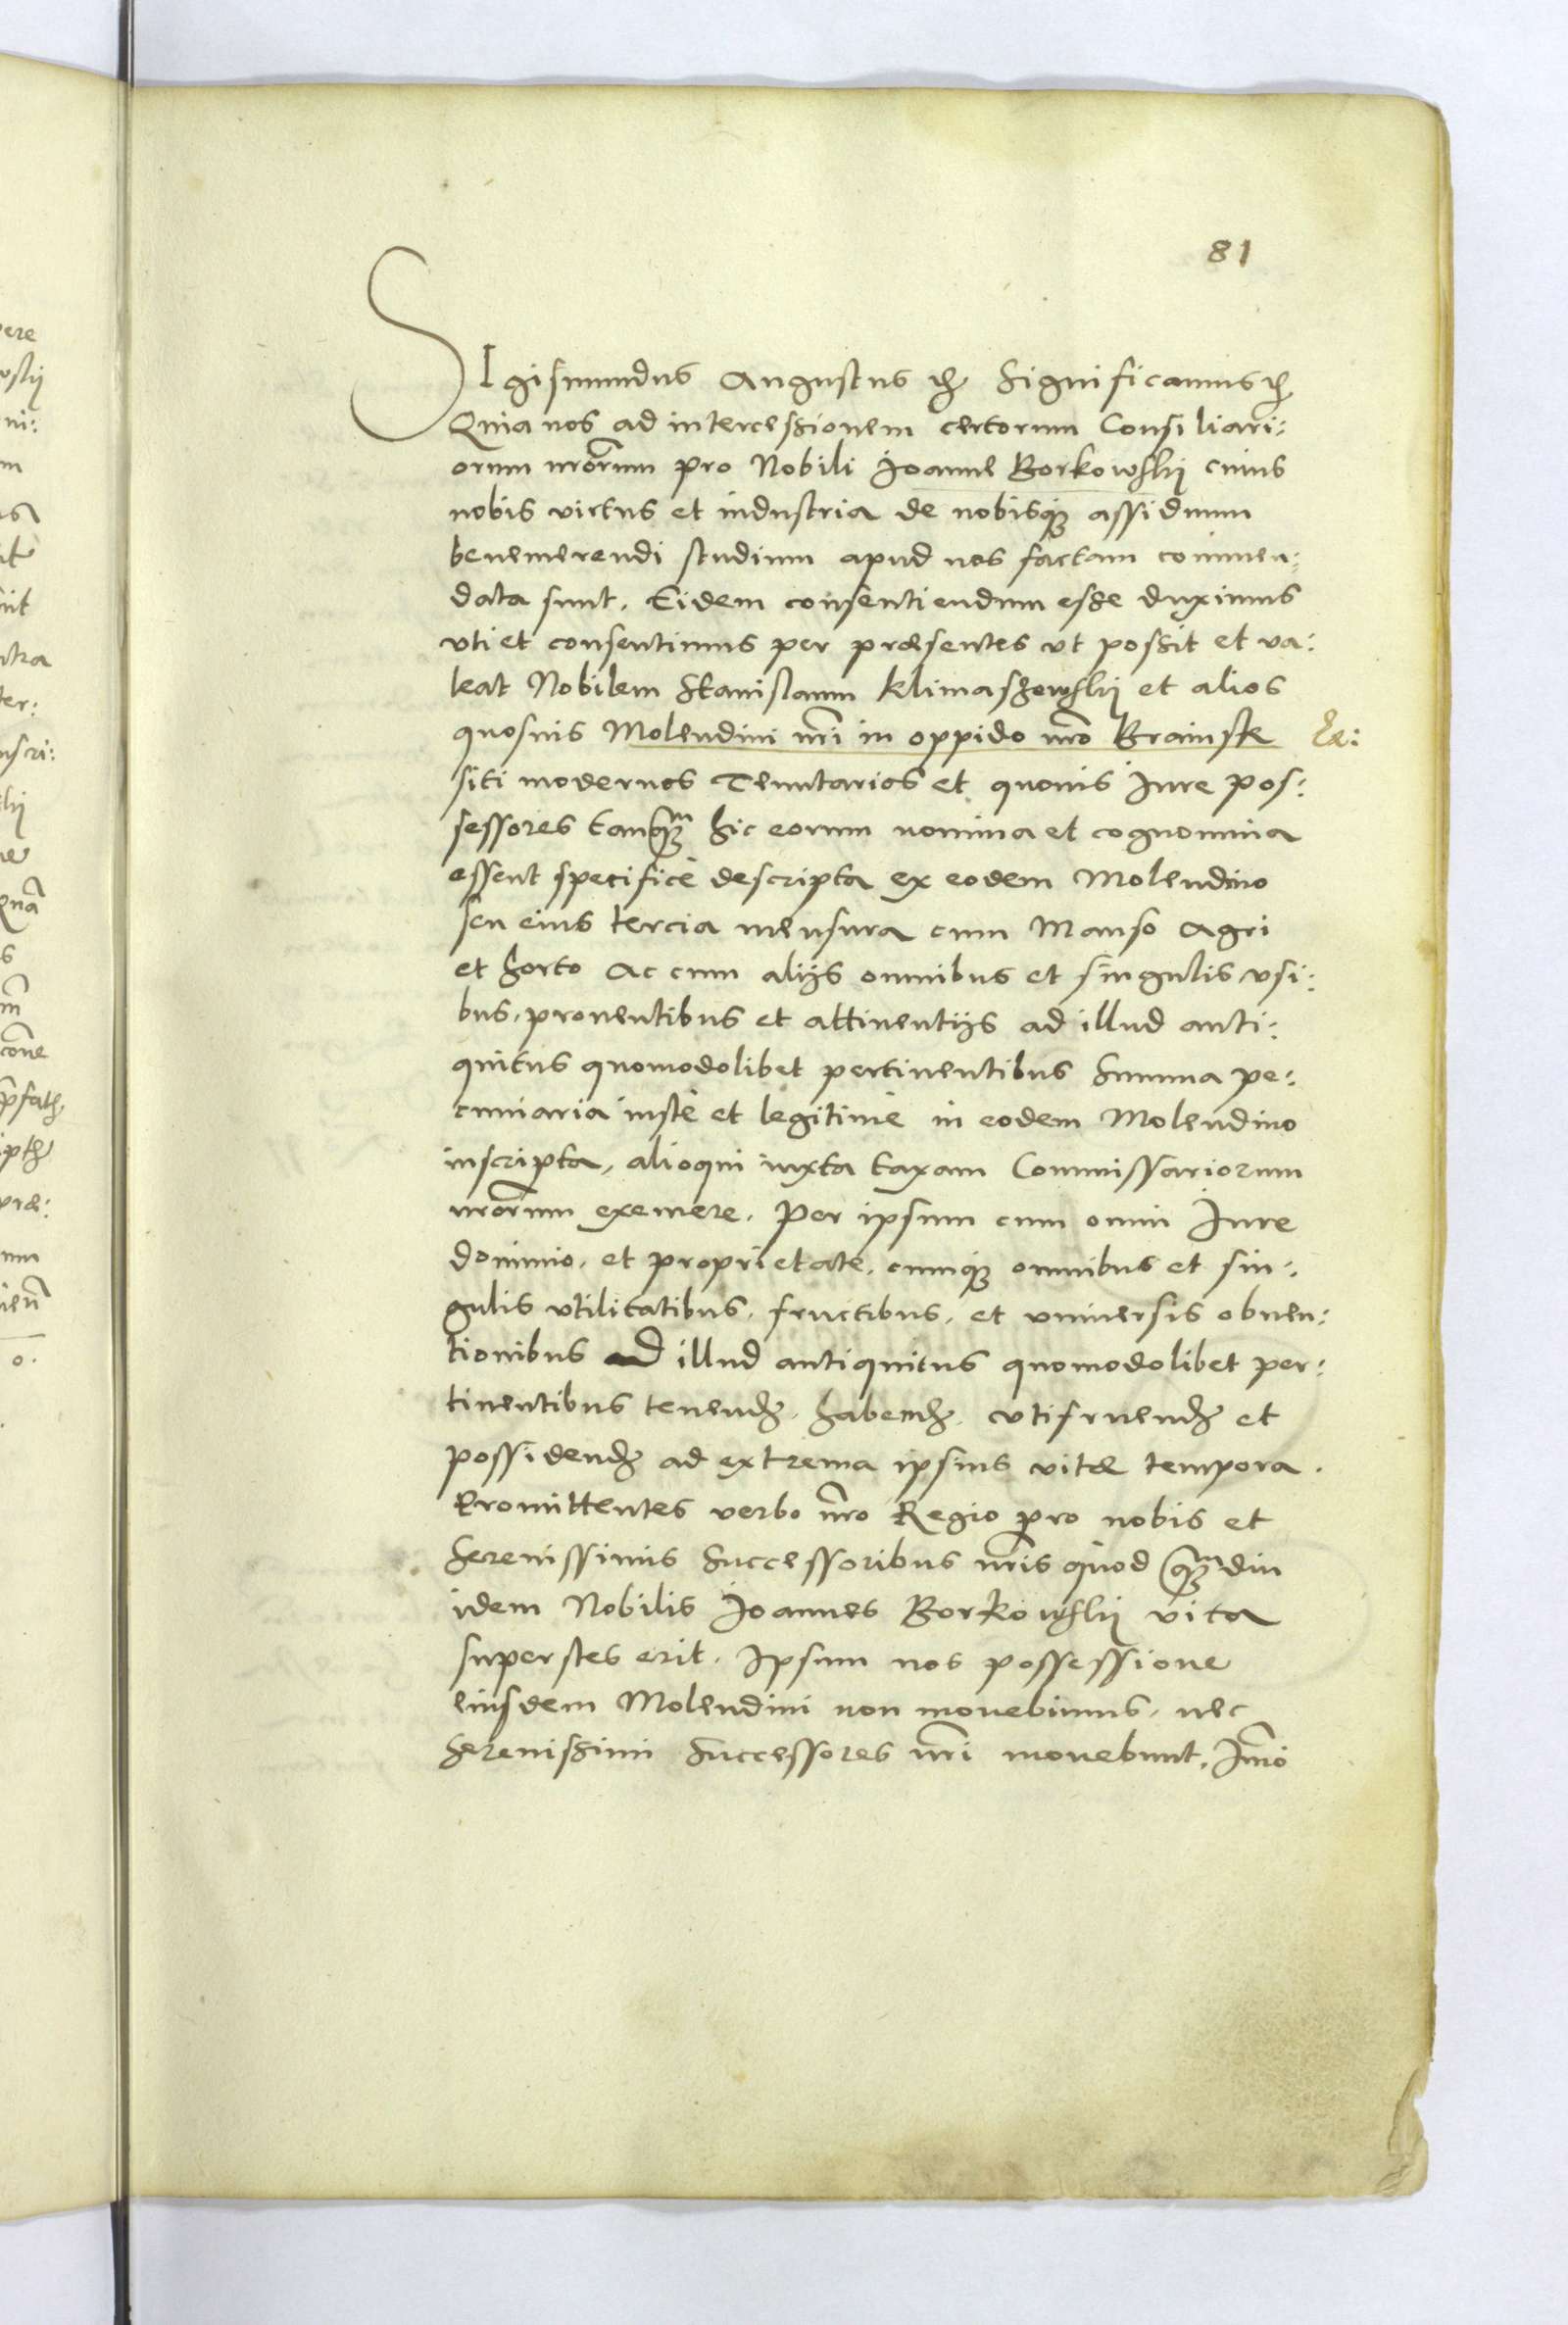 81
SIgismundus Augustus etc Significamus etc
Quia nos ad intercessionem certorum Consiliari:
orum nrorum pro Nobili Joanne Borkowskij cuius
nobis virtus et industria de nobisq; assiduum
benemerendi studium apud nos factam commen:
data sunt. Eidem consentiendum esse duximus
vti et consentimus per præsentes vt possit et va:
leat Nobilem Stanislaum Klimaszewskij et alios
quosuis Molendini nri in oppido nro Brainsk
siti modernos Tenutarios et quouis Jure pos:
sessores tanqm hic eorum nomina et cognomina
essent specificè descripta ex eodem Molendino
seu eius tercia mensura cum Manso Agri
et horto Ac cum alijs omnibus et singulis vsi:
bus, prouentibus et attinentijs ad illud anti:
quitus quomodolibet pertinentibus Summa pe:
cuniaria iustè et legitimè in eodem Molendino
inscripta, alioqui iuxta taxam Commissariorum
nrorum exemere. Per ipsum cum omni Jure
dominio, et proprietate, cumq; omnibus et sin:
gulis vtilitatibus, fructibus, et vniuersis obuen:
tionibus ad illud antiquitus quomodolibet per:
tinentibus tenend. habend. vtifruend et
possidend ad extrema ipsius vitæ tempora.
Promittentes verbo nro Regio pro nobis et
Serenissimis Successoribus nris quod qmdiu
idem Nobilis Joannes Borkowskij vita
superstes erit. Ipsum nos possessione
eiusdem Molendini non mouebimus, nec
Serenissimi Successores nri mouebunt, Jmo